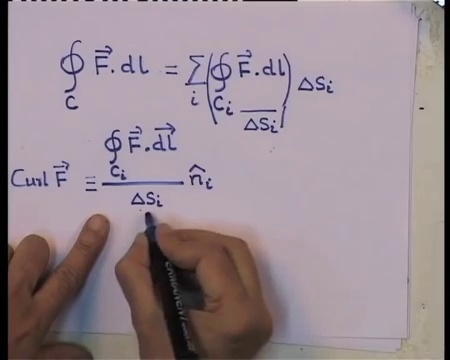 ∮_C F⃗. dl = Σ_i (∮_{C_i} F⃗. dl / ΔS_i) ΔS_i
Curl F⃗ ≡ ∮_{C_i} F⃗. dl⃗ / ΔS_i n̂_i